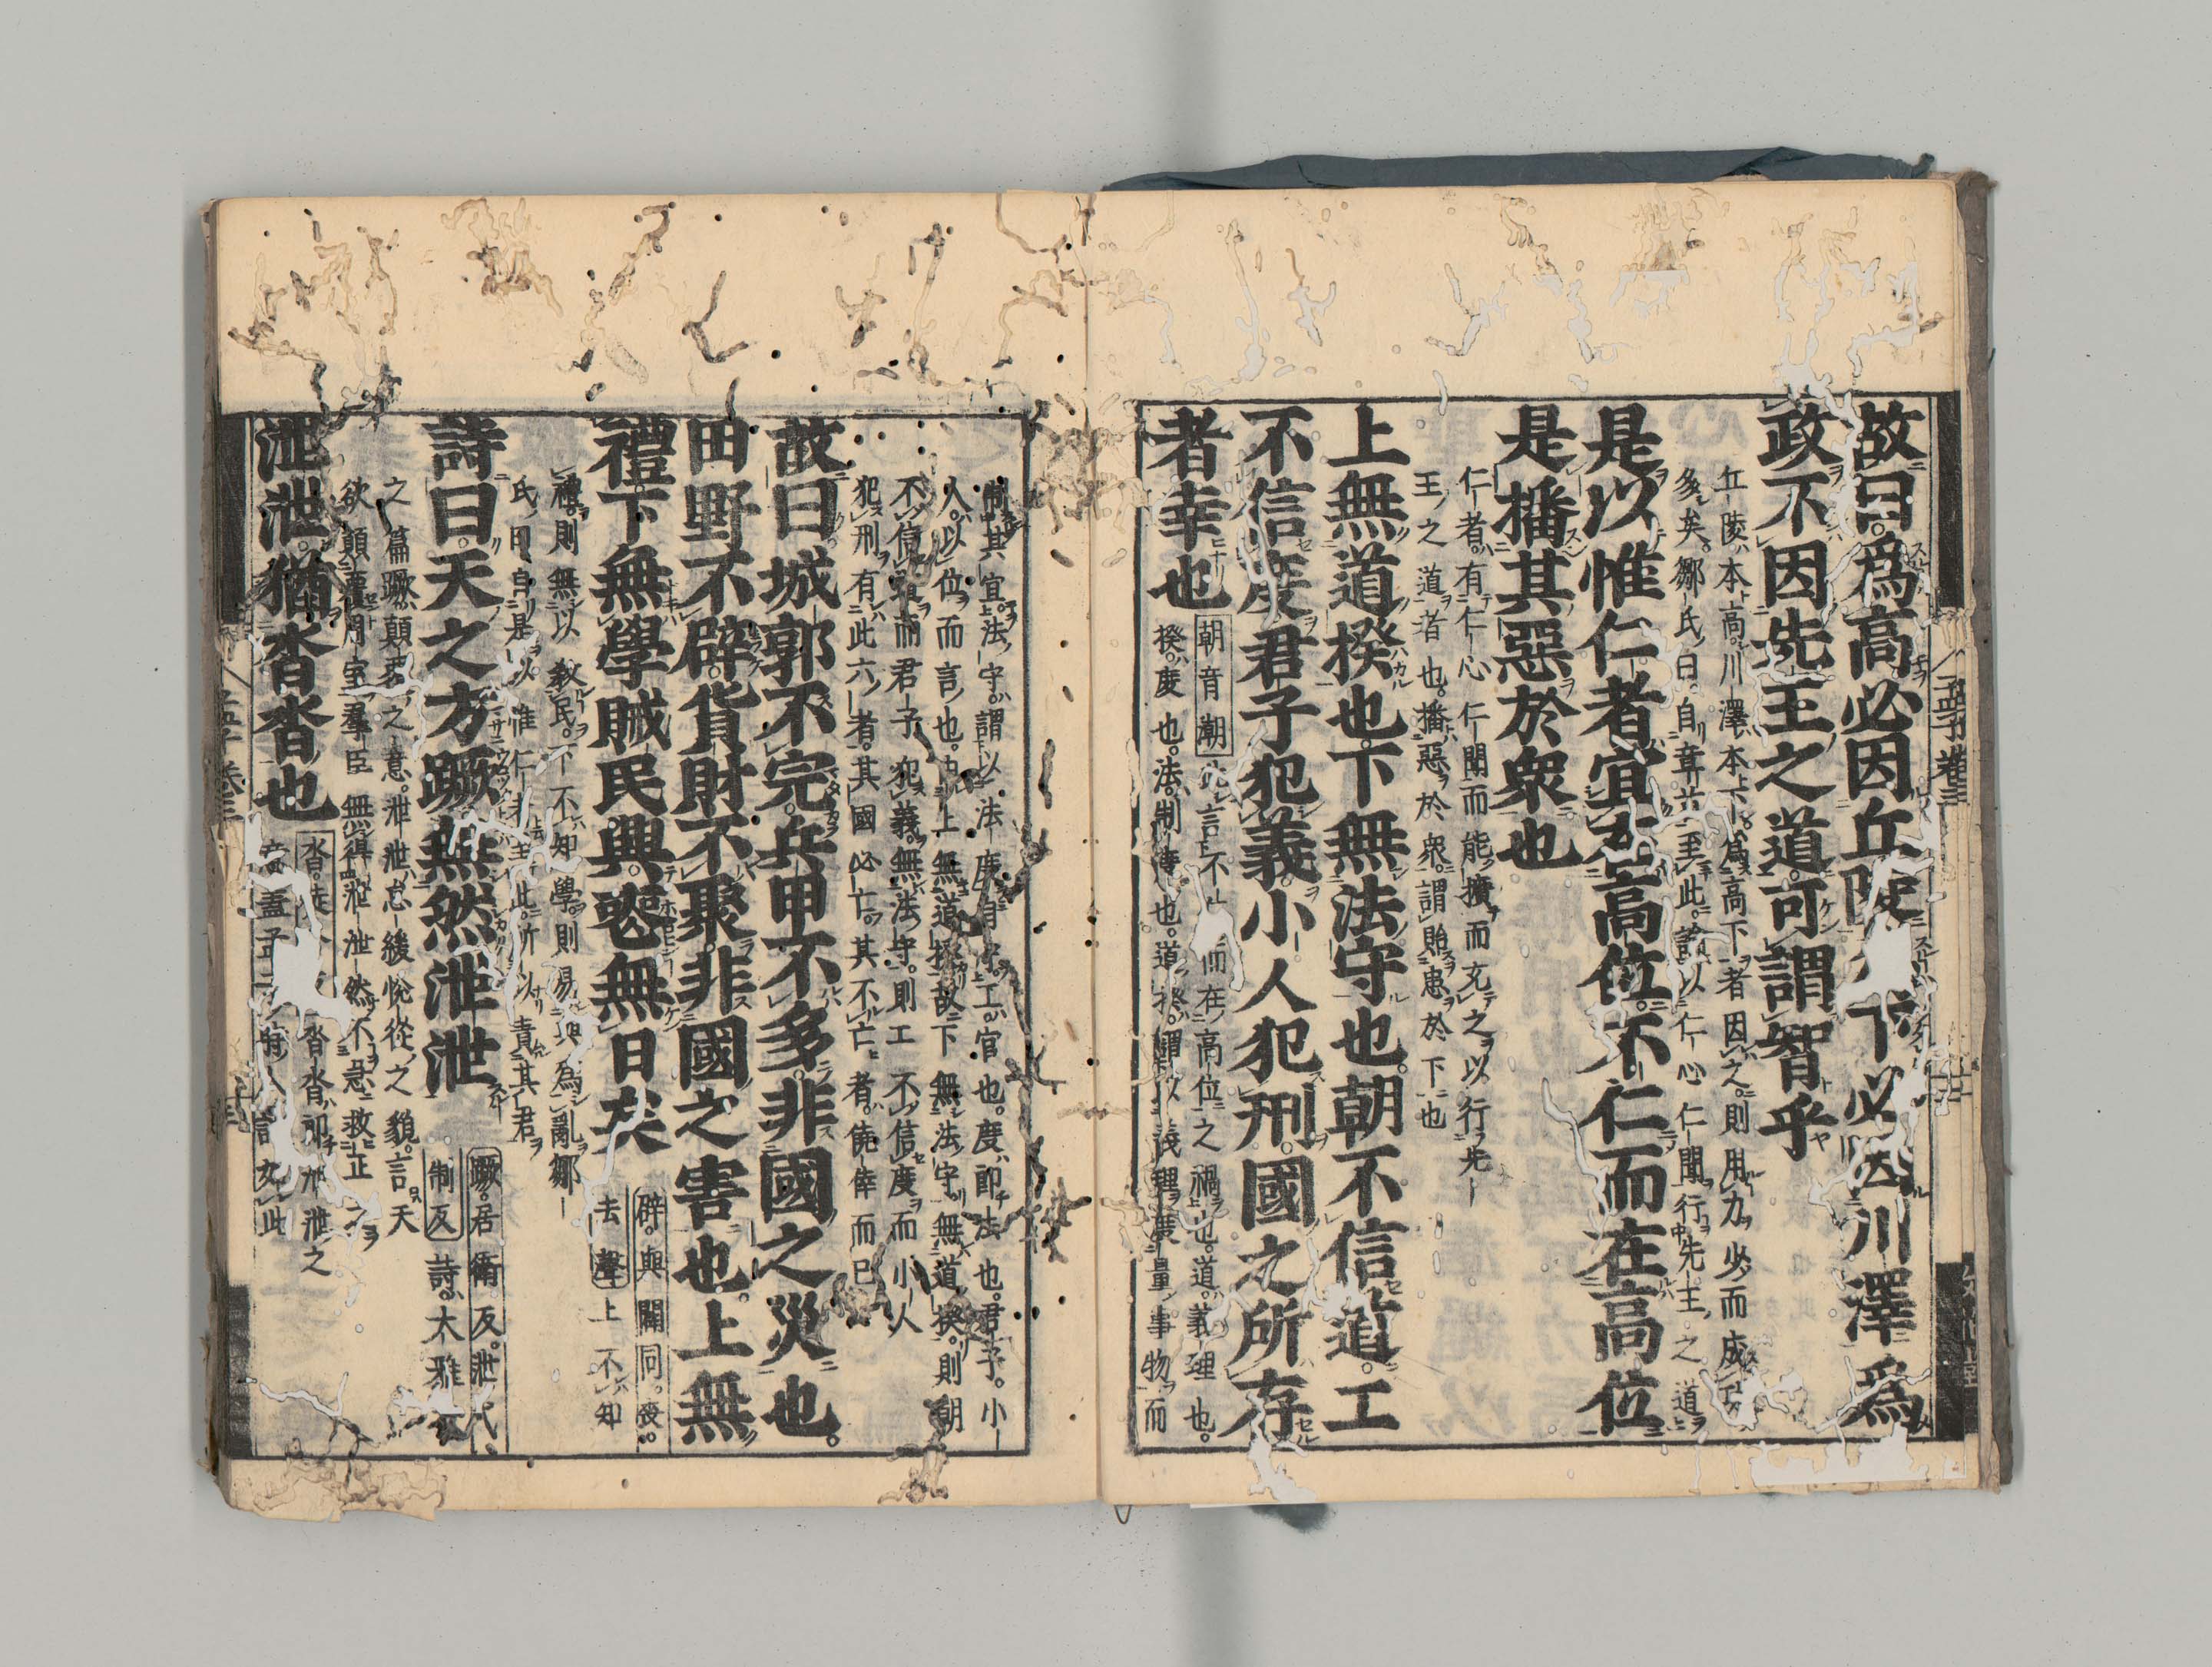 故曰爲高必因丘陵爲下必因川澤爲
政不因先王之道可謂智乎
丘陵本高川澤本下爲高下者因之則用力少而成功
多矣鄒氏曰自章首至此論以仁心仁聞行先王之道
是以惟仁者宜在高位不仁而在高位
是播其惡於衆也
仁者有仁心仁聞而能擴而充之以行先
王之道者也播惡於衆謂貽患於下也
上無道揆也下無法守也朝不信道工
不信度君子犯義小人犯刑國之所存
者幸也
朝音潮 此言不仁而在高位之禍也道義理也
揆度也法制度也道揆謂以義理度量事物而
制其宜法守謂以法度自守工官也度即法也君子小
人以位而言也由上無道揆故下無法守無道揆則朝
不信道而君子犯義無法守則工不信度而小人
犯刑有此六者其國必亡其不亡者僥倖而已
故曰城郭不完兵甲不多非國之災也
田野不辟貨財不聚非國之害也上無
禮下無學賊民興喪無日矣
辟與闢同喪
去聲 上不知
禮則無以教民下不知學則易與爲亂鄒
氏曰自是以惟仁者至此所以責其君
詩曰天之方蹶無然泄泄
蹶居衛反泄弋
制反 詩大雅板
之篇蹶顛覆之意泄泄怠緩悅從之貌言天
欲顛覆周室羣臣無得泄泄然不急救正之
泄泄猶沓沓也
沓徒合反 沓沓即泄泄之
意蓋孟子時人語如此
孟子卷三